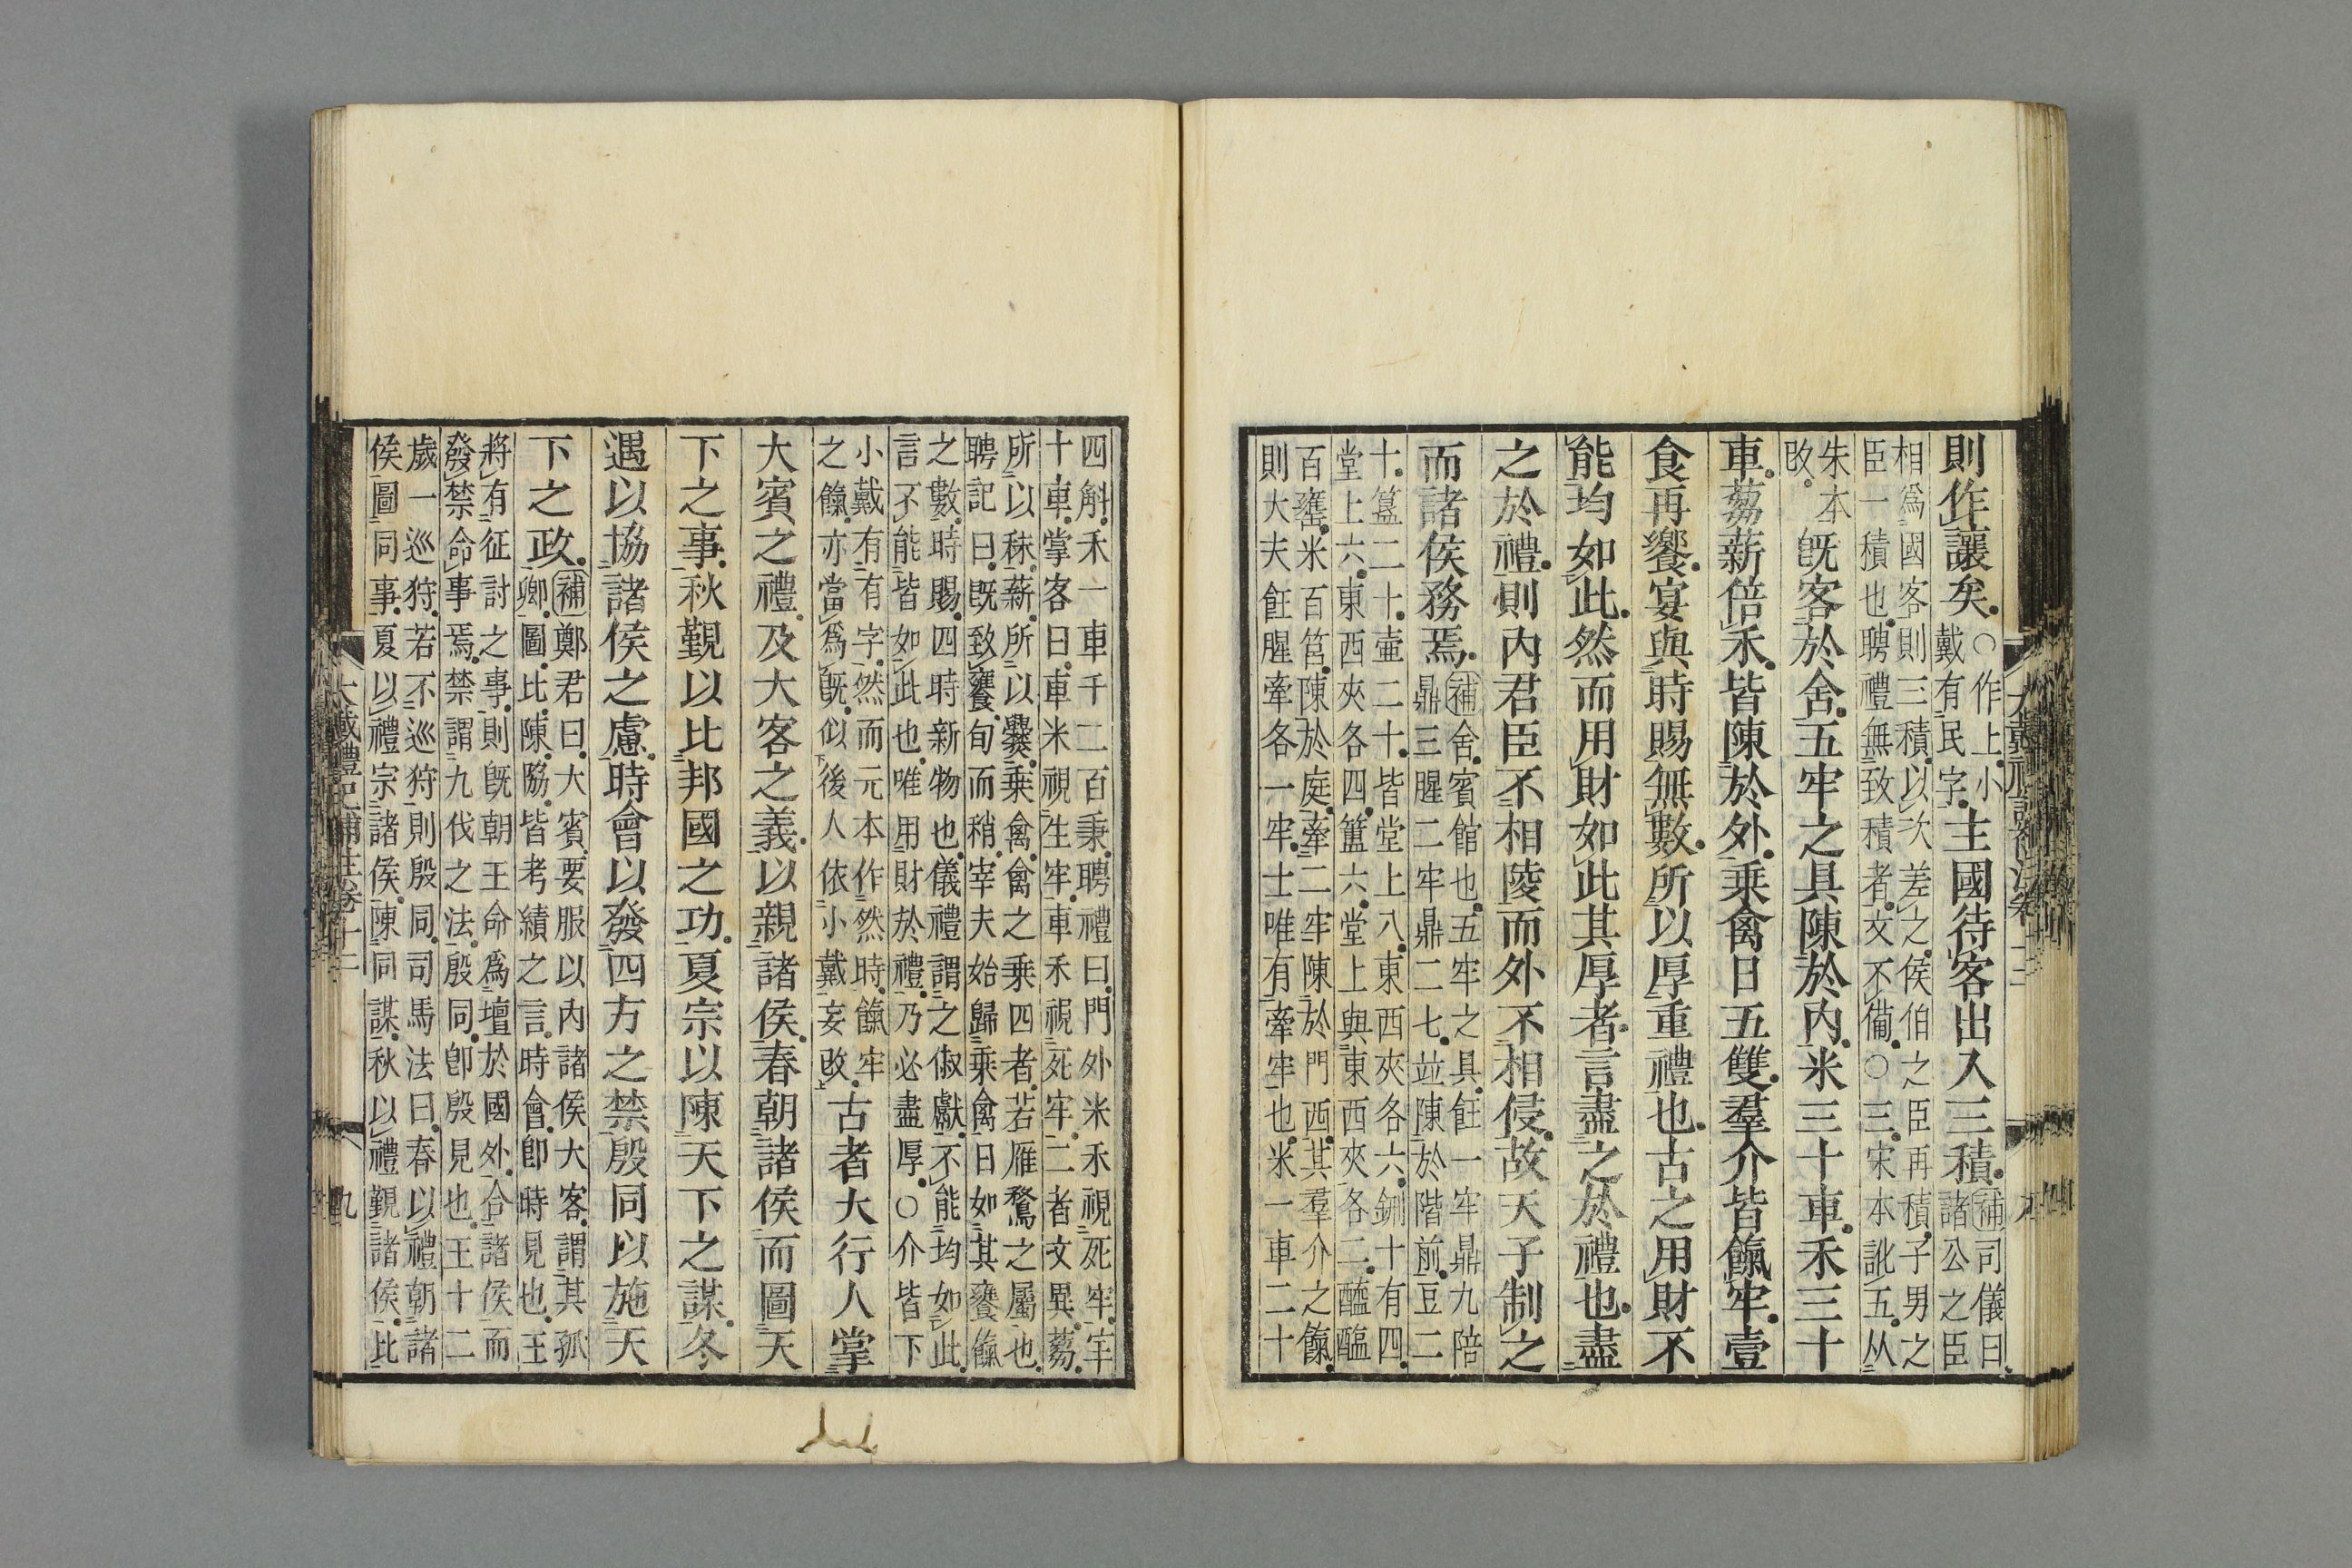 則作讓矣。○作上。小戴有民字。主國待客出入三積。補司儀曰。諸公之臣
相爲國客則三積。以次差之。侯伯之臣再積。子男之
臣一積也。聘禮無致積者。文不備。○三。宋本訛五。从
朱本改。既客於舍。五牢之具陳於內。米三十車。禾三十
車。芻薪倍禾。皆陳於外。乘禽日五雙。羣介皆餼牢。壹
食再饗。宴與時賜無數。所以厚重禮也。古之用財不
能均如此。然而用財如此其厚者。言盡之於禮也。盡
之於禮。則內君臣不相陵。而外不相侵。故天子制之
而諸侯務焉。補舍。賓館也。五牢之具。飪一牢鼎九陪鼎三。腥二牢鼎二七。並陳於階前。豆二
十。簋二十。壷二十。皆堂上八。東西夾各六。鉶十有四。
堂上六。東西夾各四。簠六。堂上與東西夾各二。醯醢
百罋。米百筥。陳於庭。牽二牢。陳於門西。其羣介之餼。
則大夫飪腥牽各一牢。士唯有牽牢也。米一車二十
四斛。禾一車千二百秉。聘禮曰。門外米禾視死牢。牢
十車。掌客曰。車米視生牢。車禾視死牢。二者文異。芻。
所以秣。薪。所以爨。乘禽。禽之乘四者。若雁鶩之屬也。
聘記曰。既致饔。旬而稍。宰夫始歸乘禽。日如其饔餼
之數。時賜。四時新物也。儀禮謂之俶獻。不能均如此。
言不能皆如此也。唯用財於禮。乃必盡厚。○介皆下
小戴有有字。然而元本作然時。餼牢
之餼。亦當爲既。似後人依小戴妄改。古者大行人掌
大賓之禮。及大客之義。以親諸侯。春朝諸侯而圖天
下之事。秋覲以比邦國之功。夏宗以陳天下之謀。冬
遇以協諸侯之慮。時會以發四方之禁。殷同以施天
下之政。補鄭君曰。大賓。要服以內諸侯。大客。謂其孤卿。圖。比。陳。協。皆考績之言。時會。卽時見也。王
將有征討之事。則既朝。王命爲壇於國外。合諸侯而
發禁命事焉。禁。謂九伐之法。殷同。卽殷見也。王十二
歲一巡狩。若不巡狩。則殷同。司馬法曰。春以禮朝諸
侯。圖同事。夏以禮宗諸侯。陳同謀。秋以禮覲諸侯。比
大戴禮記補注卷十二
九